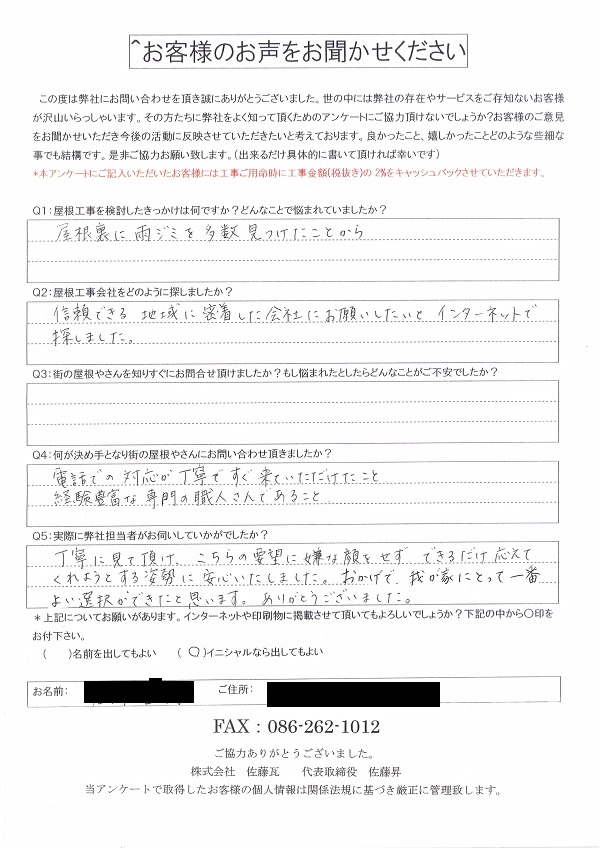 ^お客様のお声をお聞かせください
この度は弊社にお問い合わせを頂き誠にありがとうございました。世の中には弊社の存在やサービスをご存知ないお客様
が沢山いらっしゃいます。その方たちに弊社をよく知って頂くためのアンケートにご協力頂けないでしょうか?お客様のご意見
をお聞かせいただき今後の活動に反映させていただきたいと考えております。良かったこと、嬉しかったことどのような些細な
事でも結構です。是非ご協力お願い致します。(出来るだけ具体的に書いて頂ければ幸いです)
*本アンケートにご記入いただいたお客様には工事ご用命時に工事金額(税抜き)の 2%をキャッシュバックさせていただきます。
Q1:屋根工事を検討したきっかけは何ですか?どんなことで悩まれていましたか?
屋根裏に雨ジミを多数見つけたことから
Q2:屋根工事会社をどのように探しましたか?
信頼できる 地域に密着した会社にお願いしたいと インターネットで
探しました。
Q3:街の屋根やさんを知りすぐにお問合せ頂けましたか?もし悩まれたとしたらどんなことがご不安でしたか?
Q4:何が決め手となり街の屋根やさんにお問い合わせ頂きましたか?
電話での対応が丁寧ですぐ来ていただけたこと
経験豊富な専門の職人さんであること
Q5:実際に弊社担当者がお伺いしていかがでしたか?
丁寧に見て頂け、こちらの要望に嫌な顔をせず できるだけ応えて
くれようとする姿勢に安心いたしました。おかげで、我が家にとって一番
よい選択ができたと思います。ありがとうございました。
*上記についてお願いがあります。インターネットや印刷物に掲載させて頂いてもよろしいでしょうか?下記の中から〇印を
お付下さい。
( )名前を出してもよい (○)イニシャルなら出してもよい
お名前: ご住所:
FAX:086-262-1012
ご協力ありがとうございました。
株式会社 佐藤瓦 代表取締役 佐藤昇
当アンケートで取得したお客様の個人情報は関係法規に基づき厳正に管理致します。